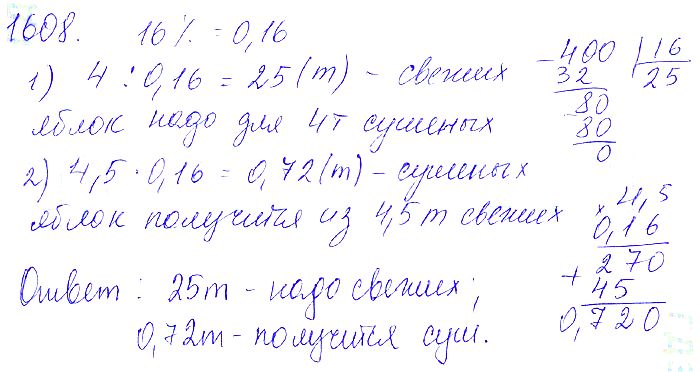 1608. 16% = 0,16
1) 4 : 0,16 = 25 (т) - свежих
яблок надо для 4т сушеных
2) 4,5 · 0,16 = 0,72 (т) - сушеных
яблок получится из 4,5 т свежих
Ответ: 25т - надо свежих;
0,72т - получится суш.
- 400 | 16
32 25
80
- 80
0
× 4,5
0,16
270
+ 45
0,720